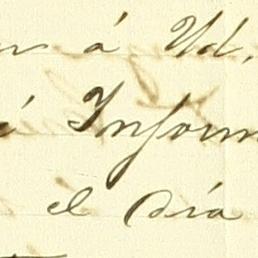 á Ud.
é Inform
el día